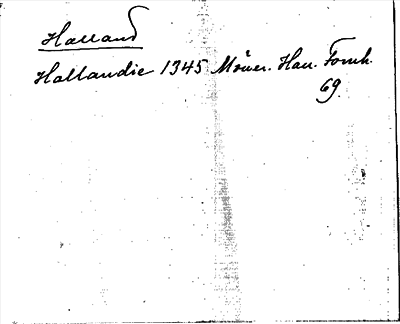 Halland
Hallandie 1345 Möller. Hall. Fornh.
69.